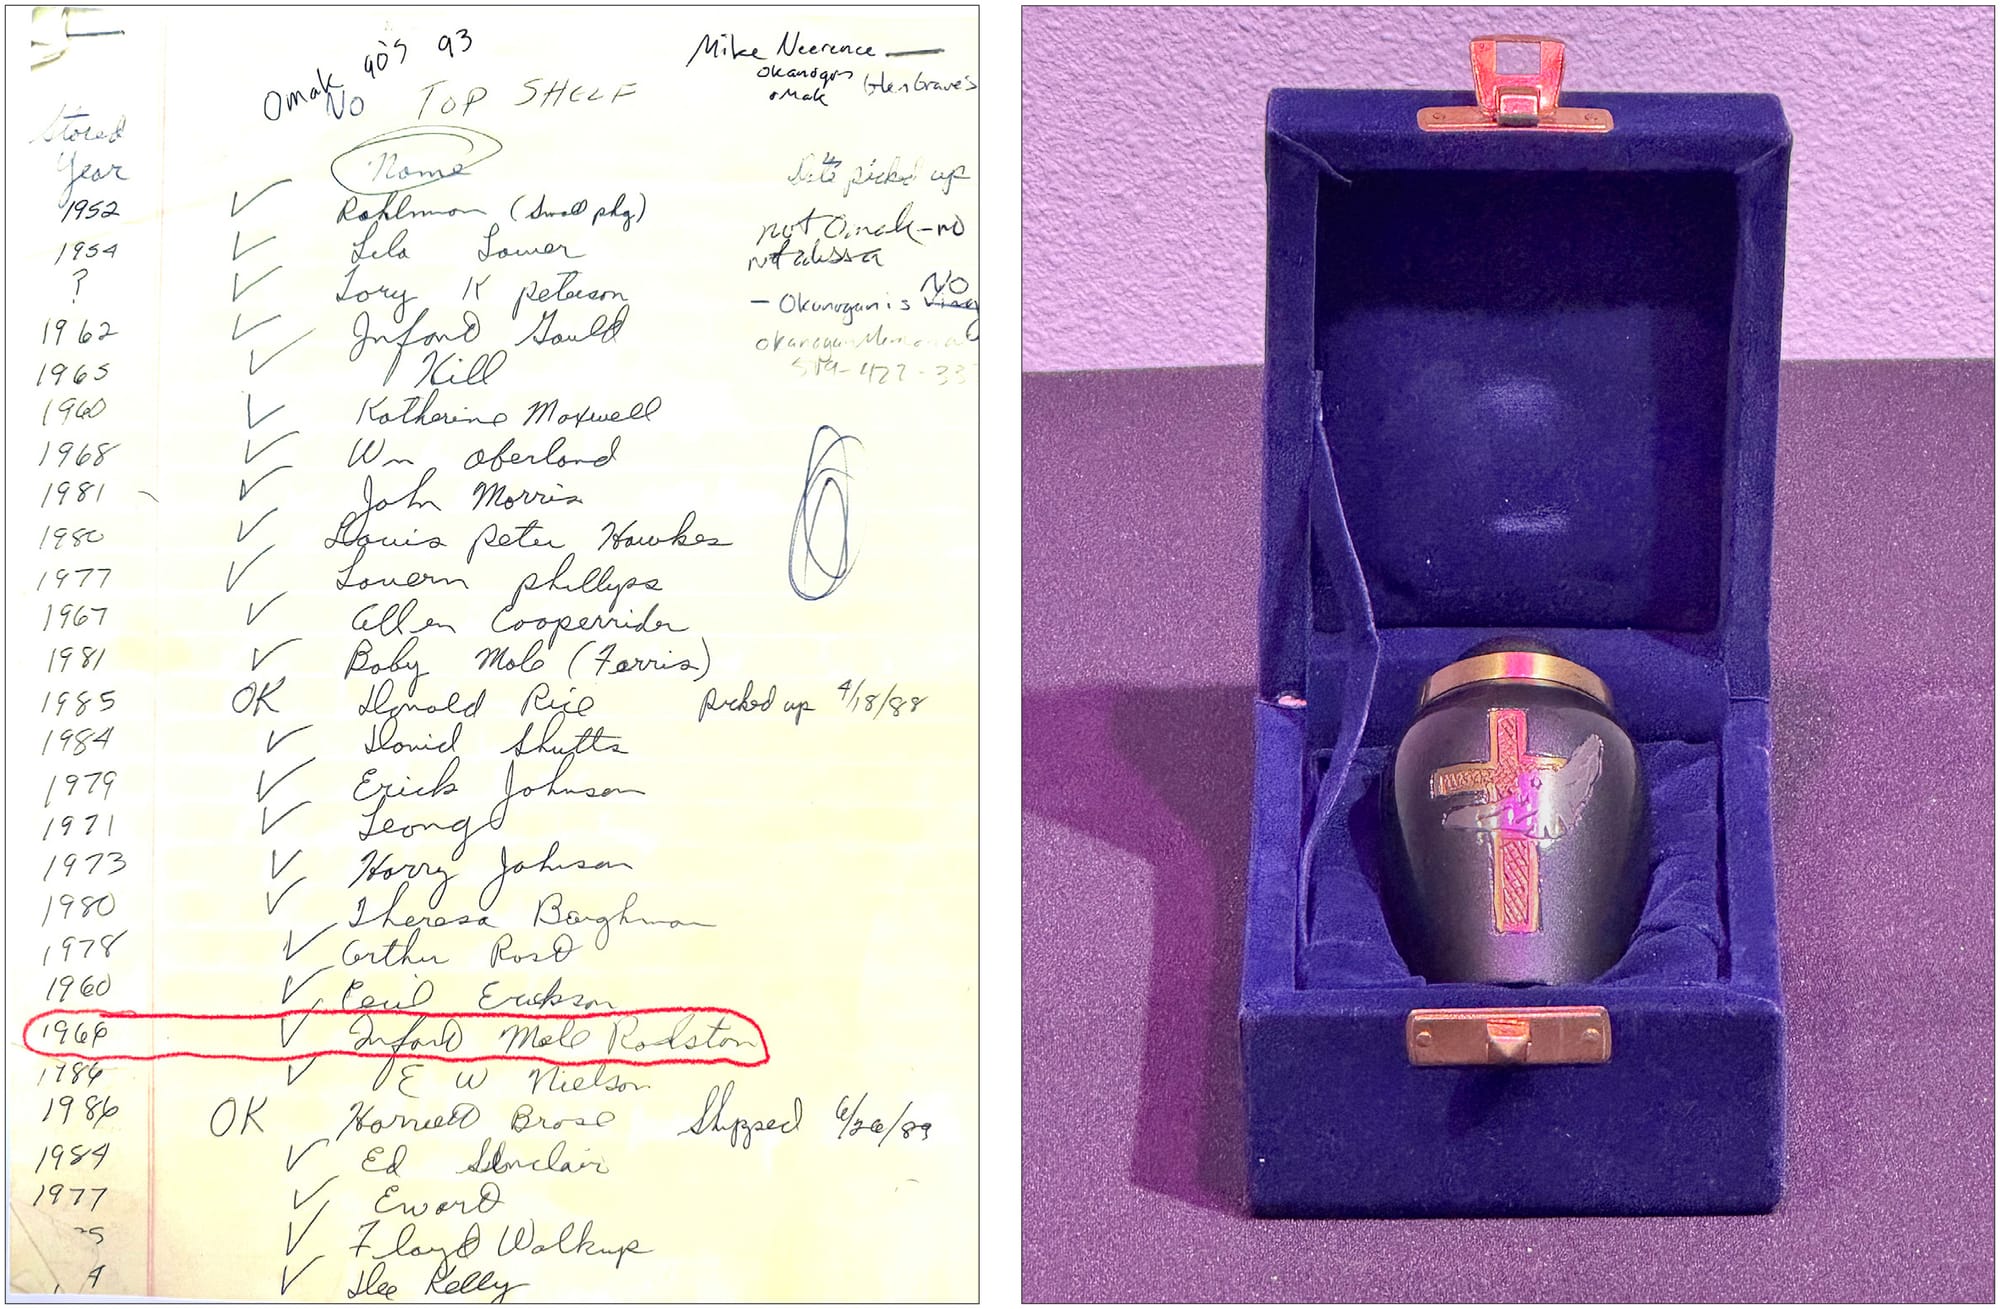 Omak 90's 93
NO TOP SHELF
Mike Neerence —
Okanogan Glen Graves
Omak
Stored
Year
Name
Date picked up
1952 ✓ Rohlman (Small pkg)
not Omak - no
not alissa
1954 ✓ Lela Lower
? ✓ Tory K Peterson
NO
— Okanogan is
1962 ✓ Infant Gould
Okanogan Memorial
509-422-33
1965 ✓ Hill
1960 ✓ Katherine Maxwell
1968 ✓ Wm Oberland
1981 ✓ John Morris
1980 ✓ Louis Peter Hawkes
1977 ✓ Lovern Phillyps
1967 ✓ Allen Cooperrider
1981 ✓ Baby Male (Ferris)
1985 OK Donald Rice Picked up 4/18/88
1984 ✓ David Shutts
1979 ✓ Erick Johnson
1971 ✓ Leong
1973 ✓ Harry Johnson
1980 ✓ Theresa Baughman
1978 ✓ Arthur Rost
1960 ✓ Cecil Erickson
196 ✓ Infant Male Rolston
1986 ✓ E W Nielson
1986 OK Harriett Brose Shipped 6/26/89
1984 ✓ Ed Sinclair
1977 ✓ Eward
✓ Floyd Walkup
✓ Dee Kelly